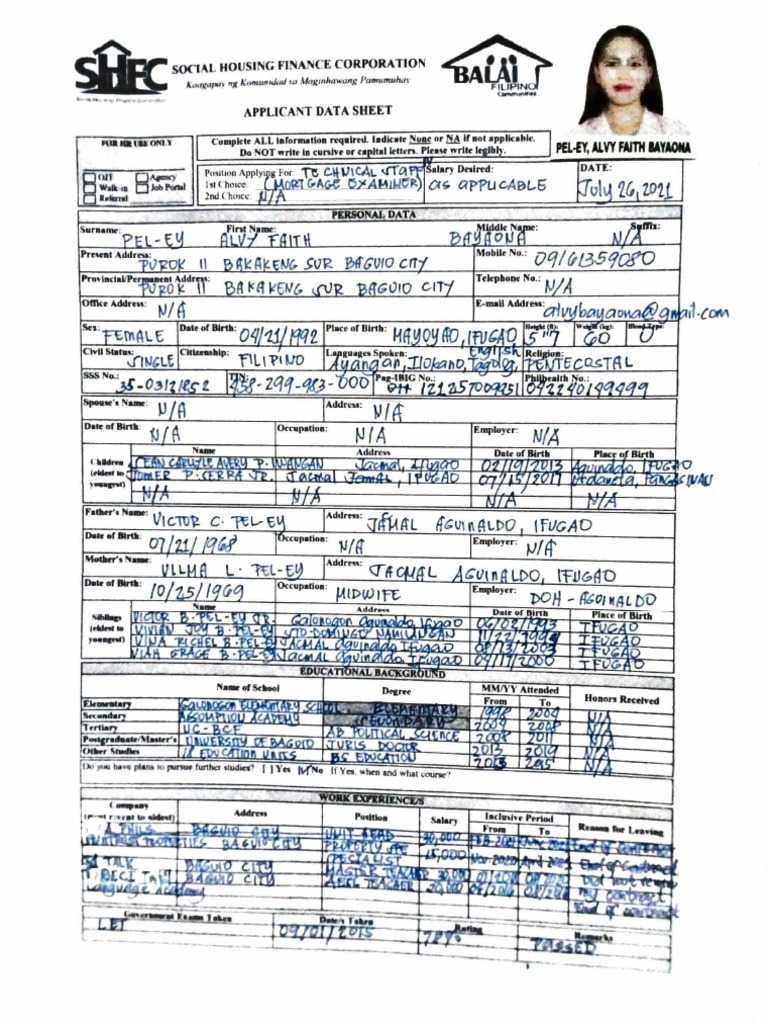 SHFC SOCIAL HOUSING FINANCE CORPORATION
Kaagapay ng Komunidad sa Maginhawang Pamumuhay
BALAI FILIPINO Communities
APPLICANT DATA SHEET
PEL-EY, ALVY FAITH BAYAONA
FOR HR USE ONLY
OJT Agency
Walk-in Job Portal
Referral
Complete ALL information required. Indicate None or NA if not applicable.
Do NOT write in cursive or capital letters. Please write legibly.
Position Applying For: TECHNICAL STAFF
1st Choice: (MORTGAGE EXAMINER)
2nd Choice: N/A
Salary Desired: as APPLICABLE
DATE: July 26, 2021
PERSONAL DATA
Surname: First Name: Middle Name: Suffix:
PEL-EY ALVY FAITH BAYAONA N/A
Present Address: PUROK 11 BAKAKENG SUR BAGUIO CITY Mobile No.: 09161359080
Provincial/Permanent Address: PUROK 11 BAKAKENG SUR BAGUIO CITY Telephone No.: N/A
Office Address: N/A E-mail Address: alvybayaona@gmail.com
Sex: FEMALE Date of Birth: 04/21/1992 Place of Birth: MAYOYAO, IFUGAO Height (ft): 5"7 Weight (kg): 60 Blood Type: O
Civil Status: SINGLE Citizenship: FILIPINO Languages Spoken: Ayangan, Ilokano, Tagalog, English Religion: PENTECOSTAL
SSS No.: 35-03121852 TIN: 938-299-983-000 Pag-IBIG No.: 121257009951 Philhealth No.: 092240199999
Spouse's Name: N/A Address: N/A
Date of Birth: N/A Occupation: N/A Employer: N/A
Children (eldest to youngest) Name Address Date of Birth Place of Birth
SEAN CARLYLE AVERY P. Jacmal, Ifugao 02/19/2013 Aguinaldo, IFUGAO
P. SERRA JR. Jacmal IFUGAO 07/15/2017 Urdaneta, PANGASINAN
N/A N/A N/A N/A
Father's Name: VICTOR C. PEL-EY Address: JAMAL AGUINALDO, IFUGAO
Date of Birth: 07/21/1968 Occupation: N/A Employer: N/A
Mother's Name: VILMA L. PEL-EY Address: JACMAL AGUINALDO, IFUGAO
Date of Birth: 10/25/1969 Occupation: MIDWIFE Employer: DOH - AGUINALDO
Siblings (eldest to youngest) Name Address Date of Birth Place of Birth
VICTOR B. PEL-EY JR. Galonogon Aguinaldo, Ifugao 06/02/1993 IFUGAO
VIVIAN JOY B. PEL-EY STO. DOMINGO 11/22/ IFUGAO
VINA RACHEL B. PEL-EY JACMAL Aguinaldo Ifugao /13/ IFUGAO
GRACE B. PEL-EY Jacmal Aguinaldo, Ifugao 04/17/2000 IFUGAO
EDUCATIONAL BACKGROUND
Name of School Degree MM/YY Attended From To Honors Received
Elementary GALONOGON ELEMENTARY SCHOOL ELEMENTARY N/A
Secondary ASSUMPTION ACADEMY SECONDARY N/A
Tertiary UC-BCF AB POLITICAL SCIENCE 2008 2011 N/A
Postgraduate/Master's UNIVERSITY OF BAGUIO JURIS DOCTOR 2013 2019 N/A
Other Studies 18 EDUCATION UNITS BS EDUCATION 2013 N/A
Do you have plans to pursue further studies? [ ] Yes [ ] No If Yes, when and what course?
WORK EXPERIENCE/S
Company (most recent to oldest) Address Position Salary Inclusive Period From To Reason for Leaving
BAGUIO CITY UNIT HEAD End of Contract
PROPERTIES BAGUIO CITY PROPERTY SPECIALIST 15,000 Nov 2020 End of Contract
TALK BAGUIO CITY MASTER TEACHER 30,000 Did not renew my contract
BECI Language Academy BAGUIO CITY TEACHER 20,000 End of contract
Government Exams Taken Date/s Taken Rating Remarks
LET 09/01/2015 78% PASSED